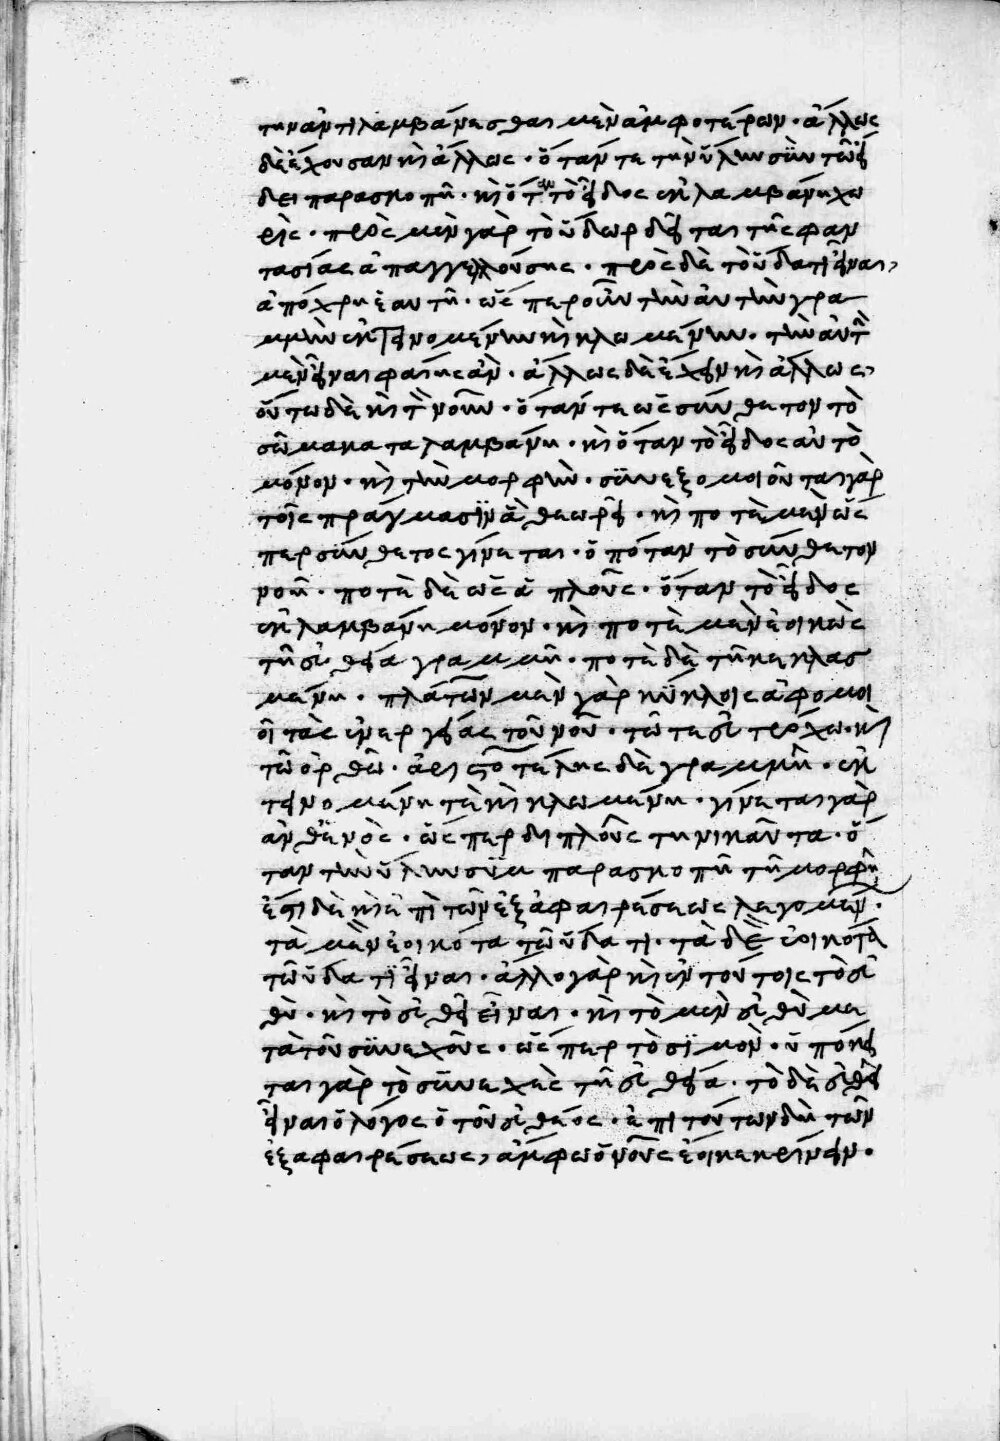 την ἀντιλαμβάνεσθαι μὲν ἀμφοτέρων · ἄλλως
δὲ ἔχουσαν κὶ ἄλλως · ὅταν τε τὴν ὕλην σὺν τῷ εἴ
δει παρασκοπῆ · κὶ ὅταν τὸ εἶδος ἐκλαμβάνη χω
ρίς · πρὸς μὲν γὰρ τὸ ὕδωρ δεῖται τῆς φαν
τασίας ἀπαγγελλούσης · πρὸς δὲ τὸ ὕδατι εἶναι,
ἀπόχρη ἑαυτῆ · ὥσπερ οὖν τὴν αὐτὴν γρα
μμὴν ἐκτεινομένην κὶ κλωμένην · τὴν αὐτὴν
μὲν εἶναι φαίης ἂν · ἄλλως δὲ ἔχειν κὶ ἄλλως,
οὕτω δὲ κὶ τὸν νοῦν · ὅταν τε ὡς σύνθετον τὸ
σῶμα καταλαμβάνη · κὶ ὅταν τὸ εἶδος αὐτὸ
μόνον · κὶ τὴν μορφὴν · συνεξομοιοῦται γὰρ
τοῖς πράγμασιν ἃ θεωρεῖ · κὶ ποτὲ μὲν ὥσ
περ σύνθετος γίνεται · ὁπόταν τὸ σύνθετον
νοῆ · ποτὲ δὲ ὡς ἁπλοῦς · ὅταν τὸ εἶδος
ἐκλαμβάνη μόνον · κὶ ποτὲ μὲν ἐοικὼς
τῆ εὐθεία γραμμῆ · ποτὲ δὲ τῆ κεκλασ
μένη · πλάτων μὲν γὰρ κύκλοις ἀφομοι
οῖ τὰς ἐνεργείας τοῦ νοῦ · τῶ τε εὐτρόχω · κὶ
τῶ ὀρθῶ · ἀριστοτέλης δὲ γραμμῆ · ἐκ
τεινομένη τὲ κὶ κλωμένη · γίνεται γὰρ
ἀνθενὸς · ὥσπερ διπλοῦς τηνικαῦτα · ὅ
ταν τὴν ὕλην συμπαρασκοπῆ τῆ μορφῆ
ἔστι δὲ κὶ ἐπὶ τῶν ἐξ ἀφαιρέσεως λεγομένων ·
τὰ μὲν ἐοικότα τῶ ὕδατι · τὰ δὲ ἐοικότα
τῶ ὕδατι εἶναι · ἄλλο γὰρ κὶ ἐν τούτοις τὸ εὐ
θὺ · κὶ τὸ εὐθεῖ εἶναι · κὶ τὸ μὲν εὐθὺ με
τὰ τοῦ συνεχοῦς · ὥσπερ τὸ σιμὸν · ὑπόκει
ται γὰρ τὸ συνεχὲς τῆ εὐθεία · τὸ δὲ εὐθεῖ
εἶναι ὁ λόγος ὁ τοῦ εὐθέος · ἐπὶ τούτων δὴ τῶν
ἐξ ἀφαιρέσεως, ἄμφω ὁ νοῦς ἔοικε κρίνειν ·